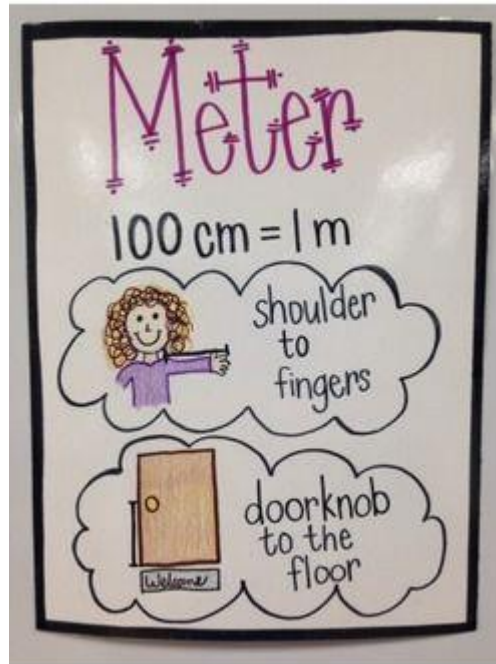 Meter
100 cm = 1 m
shoulder
to
fingers
doorknob
to the
floor
Welcome